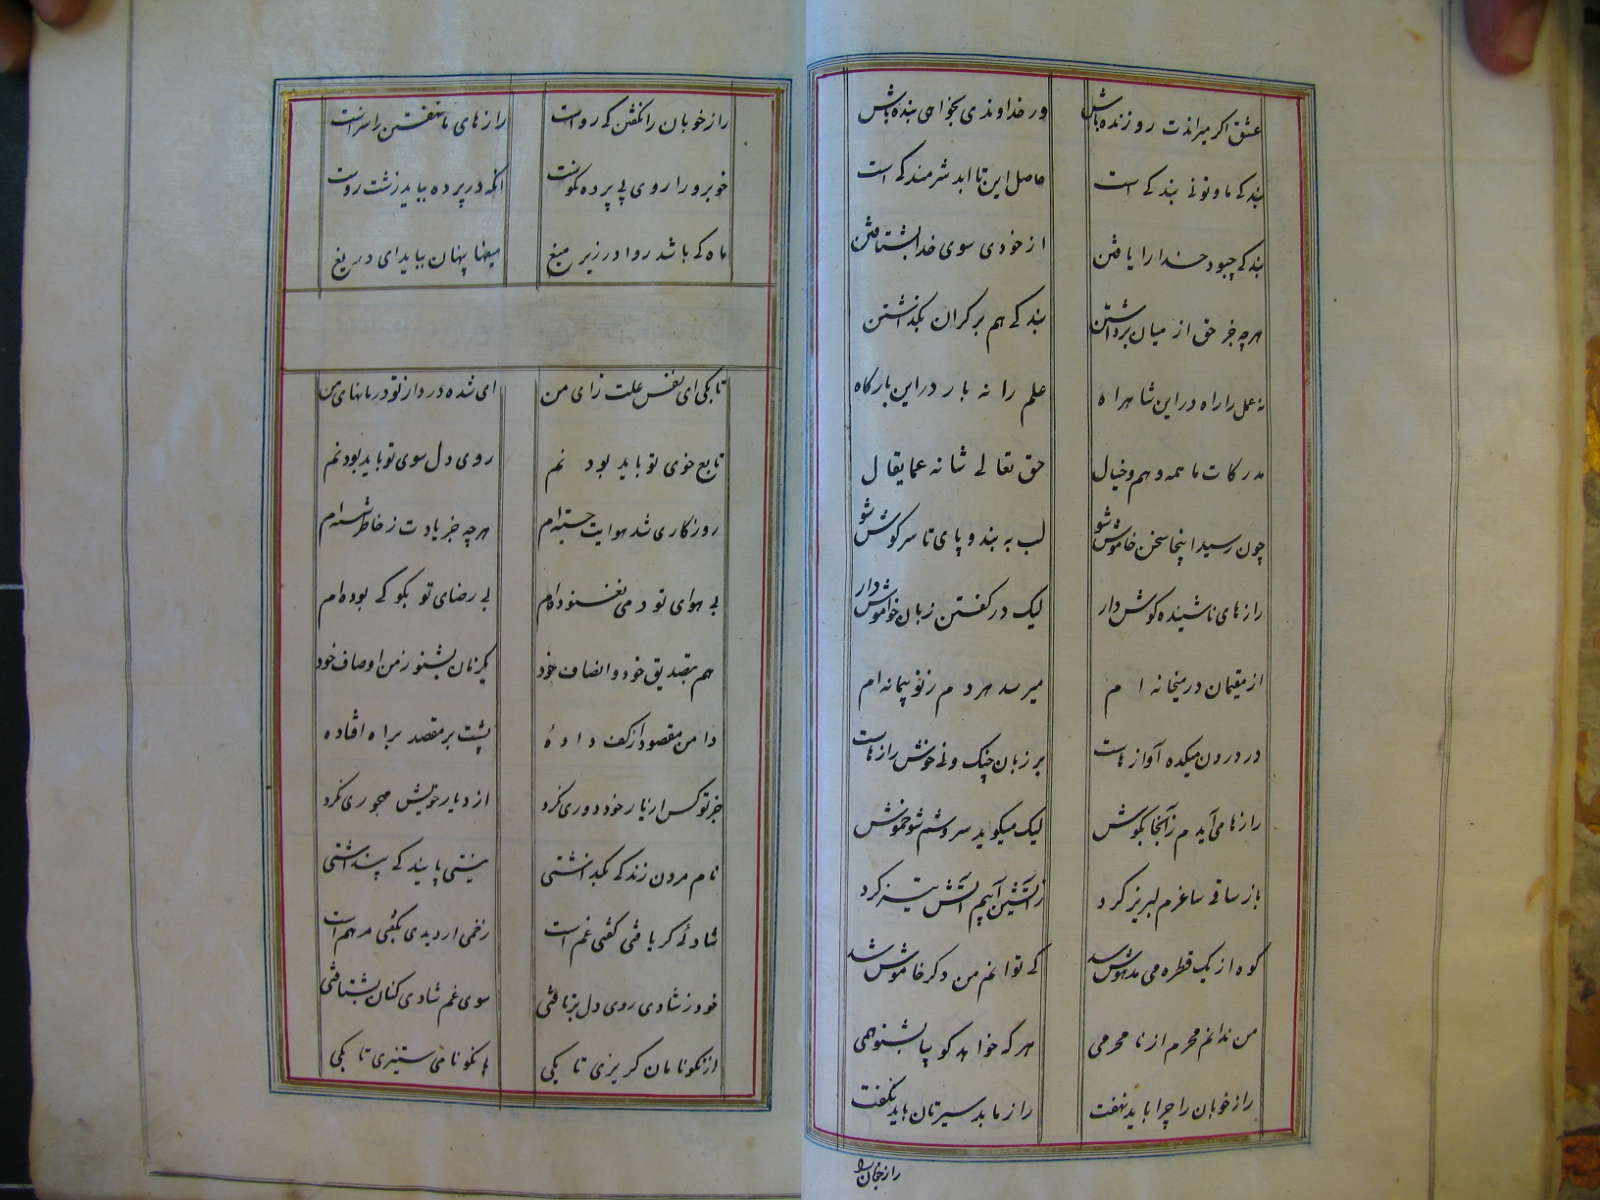 عشق اکر میراندت رو زنده باش ور خداوندی بخواهی بنده باش
بندکی ما و تو نی بندکی است حاصل این تا ابد شرمندکی است
بندکی چبود خدا را یافتن از خودی سوی خدا بشتافتن
هرچه جز حق از میان برداشتن بندکی هم بر کران بکذاشتن
نه عمل را راه در این شاهراه علم را نه بار در این بارکاه
مدرکات ما همه وهم و خیال حق تعالی شانه عما یقال
چون رسید اینجا سخن خاموش شو لب به بند و پای تا سر کوش شو
رازهای ناشنیده کوش دار لیک در کفتن زبان خواموش دار
از مقیمان در میخانه ام میرسد هر دم ز نو پیمانه ام
در درون میکده آوازهاست بر زبان چنک و نی خوش رازهاست
رازها می آیدم زآنجا بکوش لیک میکوید سروشم شو خموش
باز ساقی ساغرم لبریز کرد زآتشین آبیم آتش تیز کرد
کوه از یک قطره می مدهوش شد کی توانم من دکر خاموش شد
من ندانم محرم از نامحرمی هر که خواهد کو بیا بشنو همی
راز خوبان را چرا باید نهفت راز ما بد سیرتان باید نکفت
راز خوبان را
راز خوبان را نکفتن کی رواست رازهای ما نهفتن را سزاست
خوبرو را روی بی پرده نکوست آنکه در پرده بباید زشت روست
ماه کی باشد روا در زیر میغ میغها پنهان بباید ای دریغ
تا بکی ای نفس علت زای من ای شده درد از تو درمانهای من
تابع خوی تو باید بودنم روی دل سوی تو باید بودنم
روزکاری شد هوایت جسته ام هرچه جز یادت ز خاطر شسته ام
بی هوای تو دمی نغنوده ام بی رضای تو بکو کی بوده ام
هم بتصدیق خود و انصاف خود یکزمان بشنو ز من اوصاف خود
دامن مقصود از کف دادهٔ پشت بر مقصد براه افتاده
جز تو کس از یار خود دوری نکرد از دیار خویش مهجوری نکرد
نام مردن زندکی بکذاشتی نیستی پایندکی پنداشتی
شادئی کر یافتی کفتی غم است زخمی ار دیدی بکفتی مرهم است
خود ز شادی روی دل برتافتی سوی غم شادی کنان بشتافتی
از نکونامان کریزی تا بکی با نکونامی ستیزی تا بکی